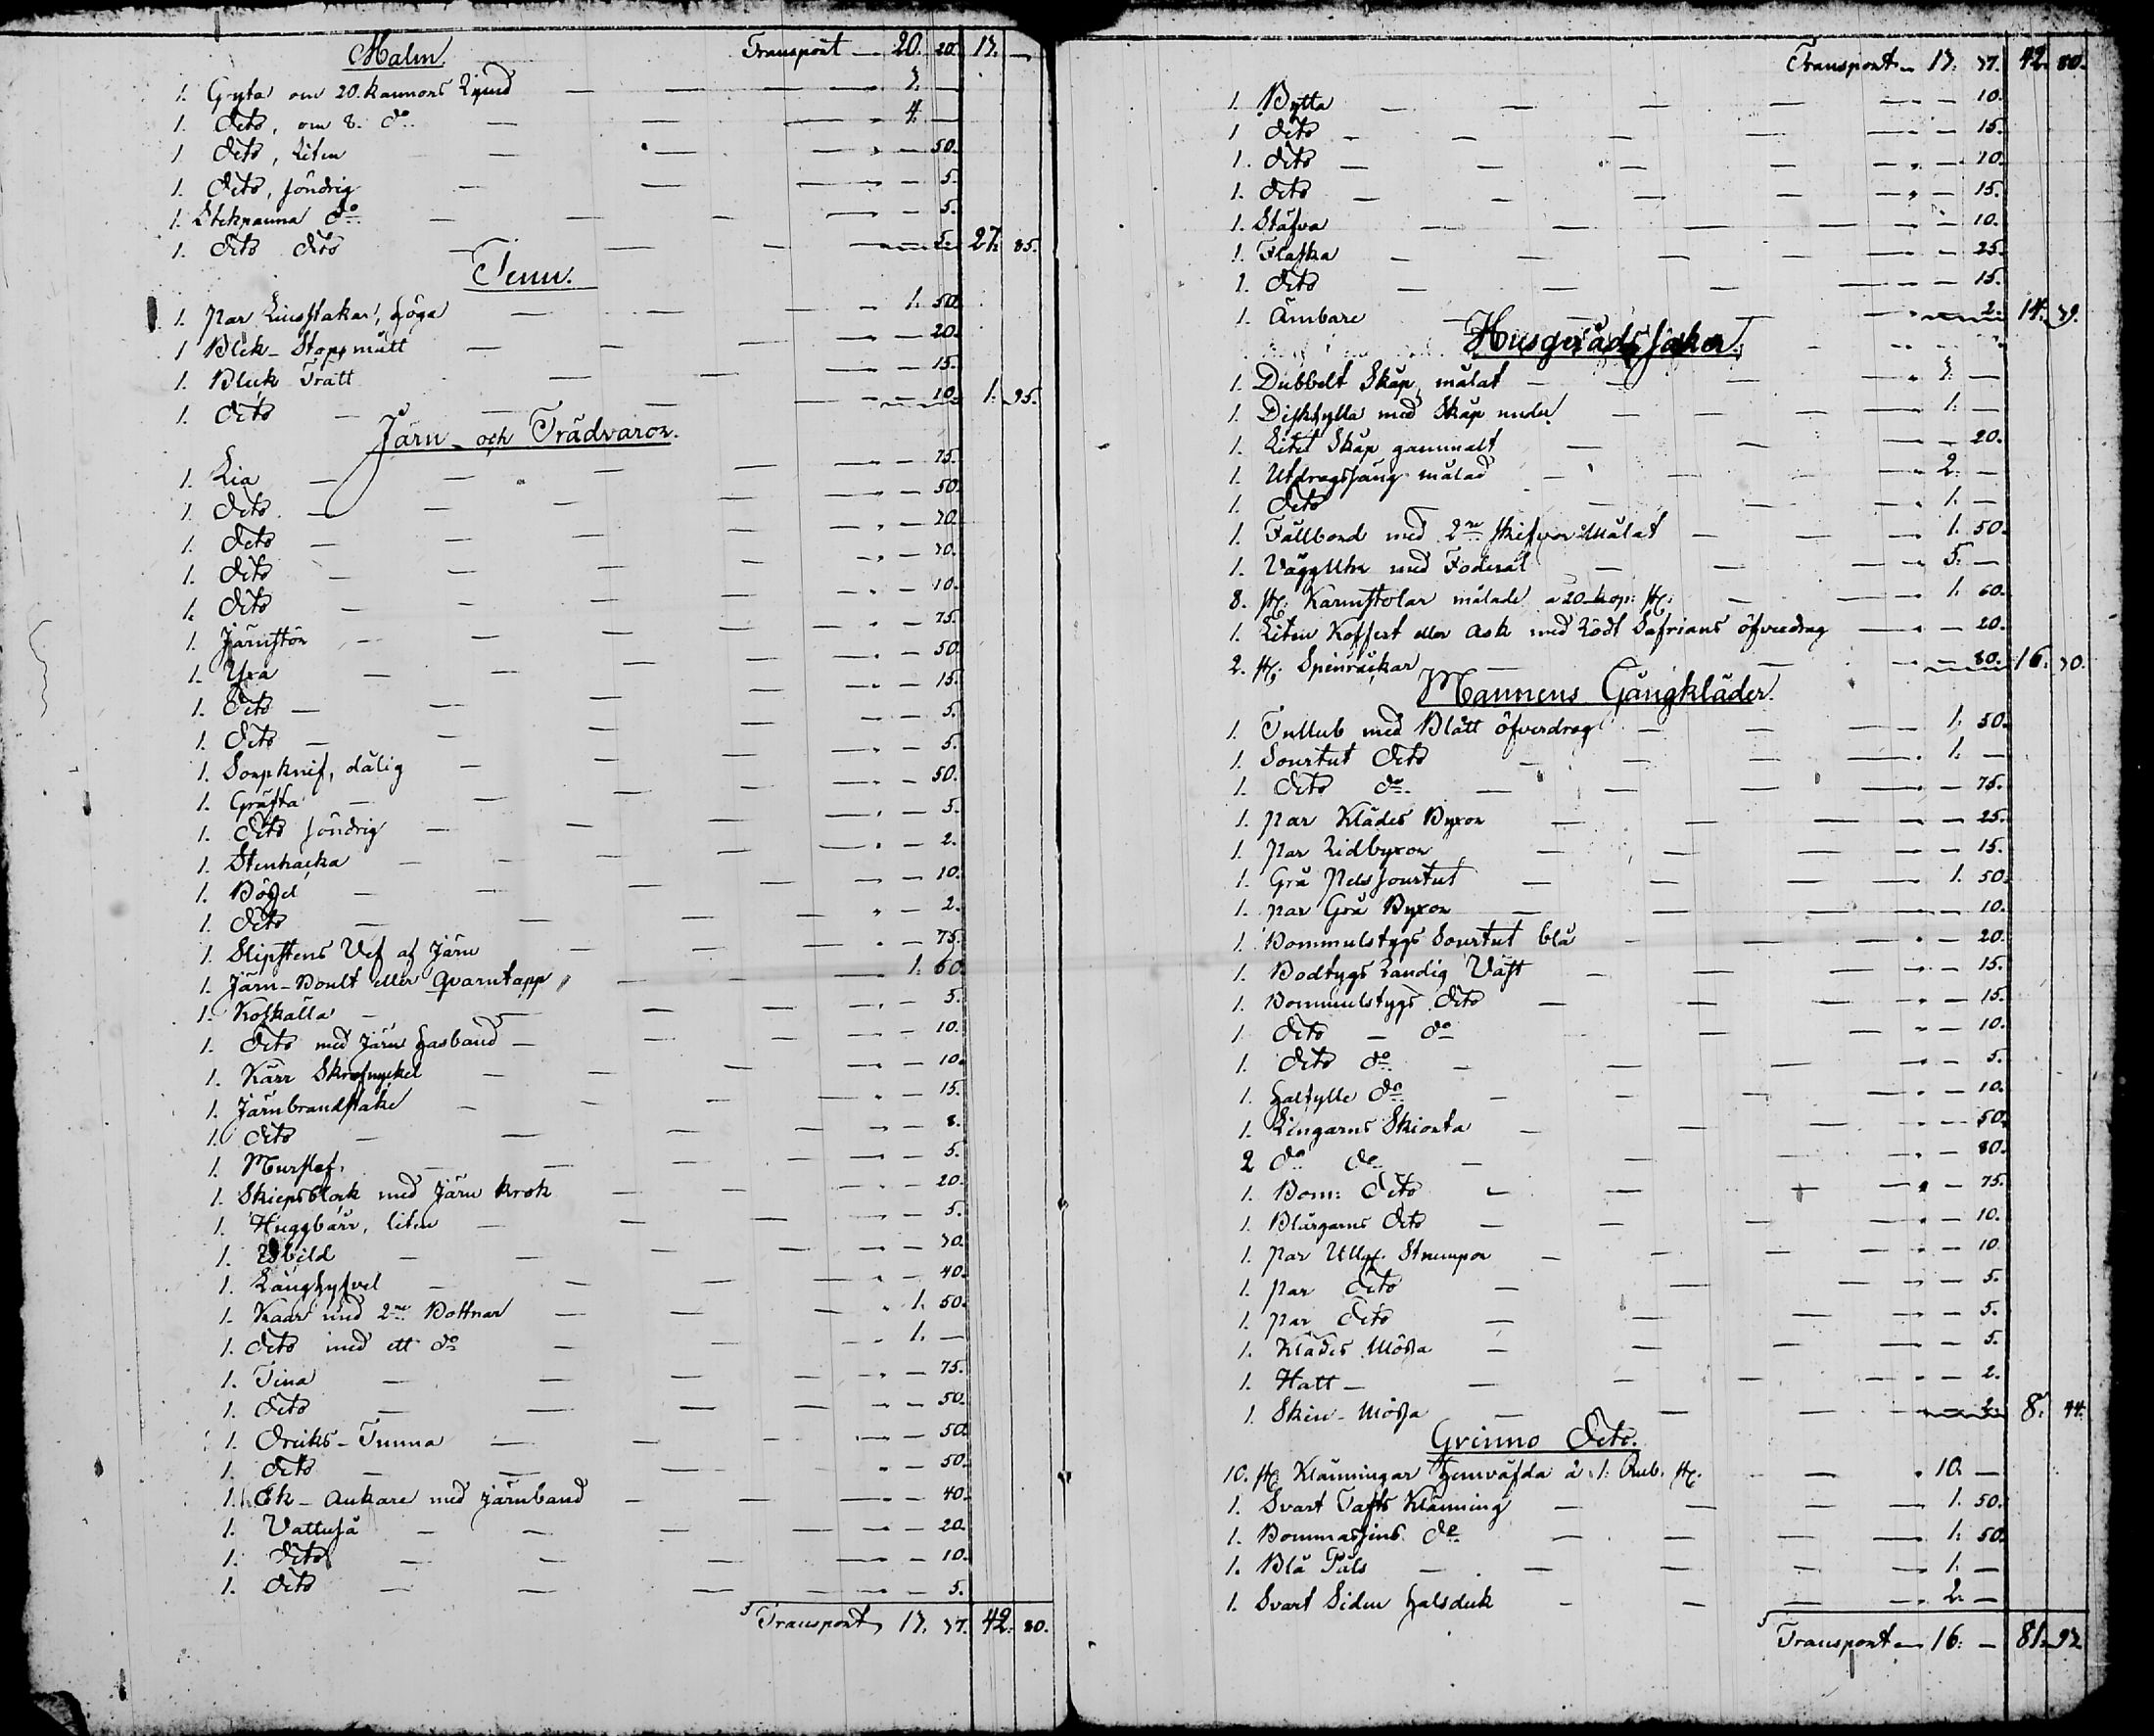 Malm. Transport — 20. 20. 13. —
1. Gryta om 20. kannors Rymd — 3. —
1. Dito, om 8. do — 4. —
1. Dito, Liten — 50.
1. Dito, söndrig — 5.
1. Stekpanna do — 5.
1. Dito Dito — 5. 27. 85.
Tenn.
1. par Liusstakar, höga — 1. 50.
1 Blek-Stopsmått — 20.
1. Bleck Tratt — 15.
1. Dito — 10. 1. 95.
Järn- och Trädvaror.
1. Lia — 75.
1. Dito — 50.
1. Dito — 30.
1. Dito — 30.
1. Dito — 10.
1. Järnstör — 75.
1. Yxa — 50.
1. Dito — 15.
1. Dito — 5.
1. Soxpknif, dålig — 5.
1. Gräfta — 50.
1. Dito söndrig — 5.
1. Stenhacka — 2.
1. Bögel — 10.
1. Dito — 2.
1. Slipstens Vef af Järn — 75.
1. Järn-Boult eller Qvarntapp — 1. 60.
1. Koskälla — 5.
1. Dito med Järn hasband — 10.
1. Kärr Skrufnyckel — 10.
1. Järnbrandstake — 15.
1. Dito — 8.
1. Murslef — 5.
1. Skiepsblock med Järn krok — 20.
1. Huggbärr, liten — 5.
1. — 30.
1. Långhyfvel — 40.
1. Kaar med 2ne Bottnar — 1. 50.
1. Dito med ett do — 1. —
1. Tina — 75.
1. Dito — 50.
1. Dricks-Tunna — 50.
1. Dito — 50.
1. Ek-Ankare med järnband — 40.
1. Vattuså — 20.
1. Dito — 10.
1. Dito — 5.
Transport 13. 37. 42. 80.
Transport — 13. 37. 42. 80.
1. Bytta — 10.
1 Dito — 15.
1. Dito — 10.
1. Dito — 15.
1. Stäfva — 10.
1. Flaska — 25.
1. Dito — 15.
1. Ämbare — 2. 14. 39.
Husgerådssaker.
1. Dubbelt Skåp, målat — 3. —
1. Diskhylla med Skåp under — 1. —
1. Litet Skåp gammalt — 20.
1. Utdragssäng målad — 2. —
1. Dito — 1. —
1. Fällbord med 2ne skifvor Målat — 1. 50.
1. VäggUhr med Foderal — 5. —
8. st. Karmstolar målade a 20 kop: st. — 1. 60.
1. Liten Koffert eller Ask med Rödt Safrians öfverdrag — 20.
2. st. Spinråckar — 80. 16. 30.
Mannens Gångkläder.
1. Tullub med Blått öfverdrag — 1. 50.
1. Sourtut Dito — 1. —
1. Dito do — 75.
1. par Klädes Byxor — 25.
1. par Ridbyxor — 15.
1. Grå Pels sourtut — 1. 50.
1. par Grå Byxor — 10.
1. Bommulstygs Sourtut blå — 20.
1. Bodtygs Randig Väst — 15.
1. Bommulstygs Dito — 15.
1. Dito — do — 10.
1. Dito do — 5.
1. Halfylle do — 10.
1. Lingarns Skiorta — 50.
2 do do — 80.
1. Bom: Dito — 75.
1. Blårgarns Dito — 10.
1. par Ullg. Strumpor — 10.
1. par Dito — 5.
1. par Dito — 5.
1. Klädes Mössa — 5.
1. Hatt — 2.
1. Skin-Mössa — 2. 8. 44.
Qvinno Dito.
10. st. Klänningar Hemväfda à 1: Rub. st. — 10. —
1. Svart Tafts Klänning — 1. 50.
1. Bommassins do — 1. 50.
1. Blå Päls — 1. —
1. Svart Siden halsduk — 2. —
Transport — 16. — 81. 93.